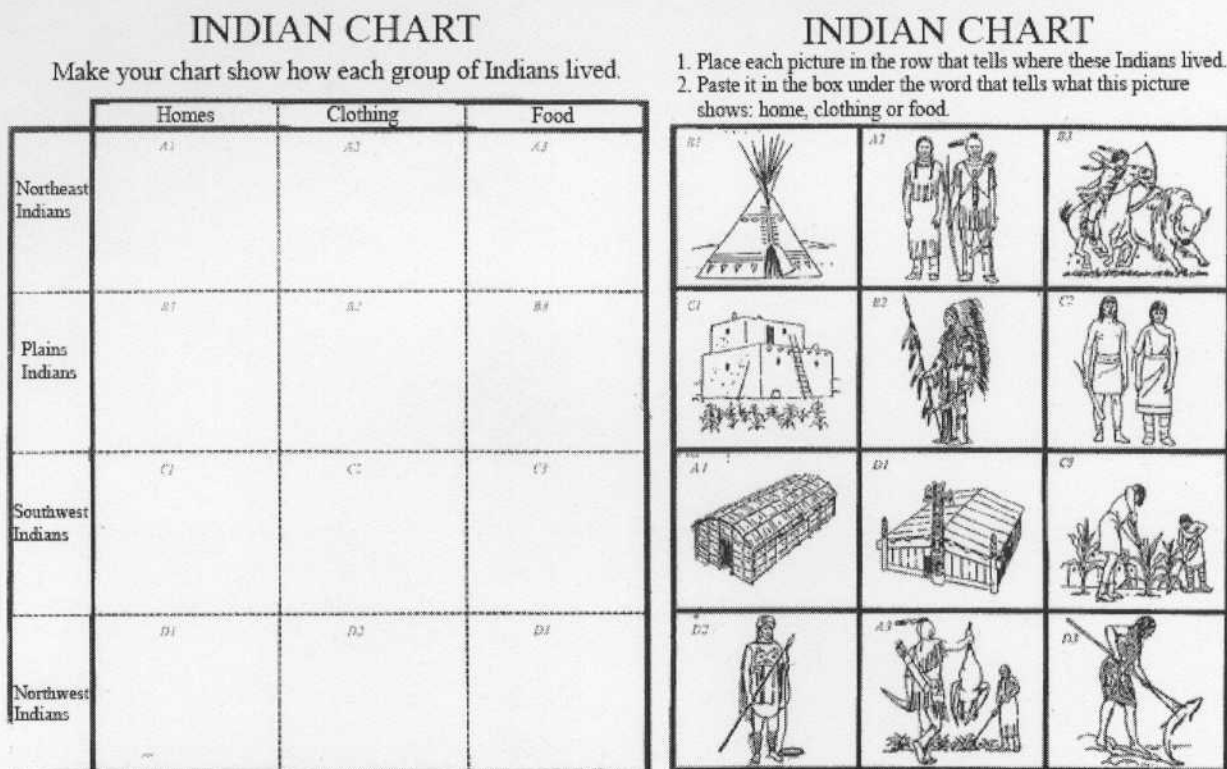 INDIAN CHART
Make your chart show how each group of Indians lived.
Homes Clothing Food
A1 A2 A3
Northeast
Indians
B1 B2 B3
Plains
Indians
C1 C2 C3
Southwest
Indians
D1 D2 D3
Northwest
Indians
INDIAN CHART
1. Place each picture in the row that tells where these Indians lived.
2. Paste it in the box under the word that tells what this picture
shows: home, clothing or food.
B1 A2 B3
C1 B2 C2
A1 D1 C3
D2 A3 D3